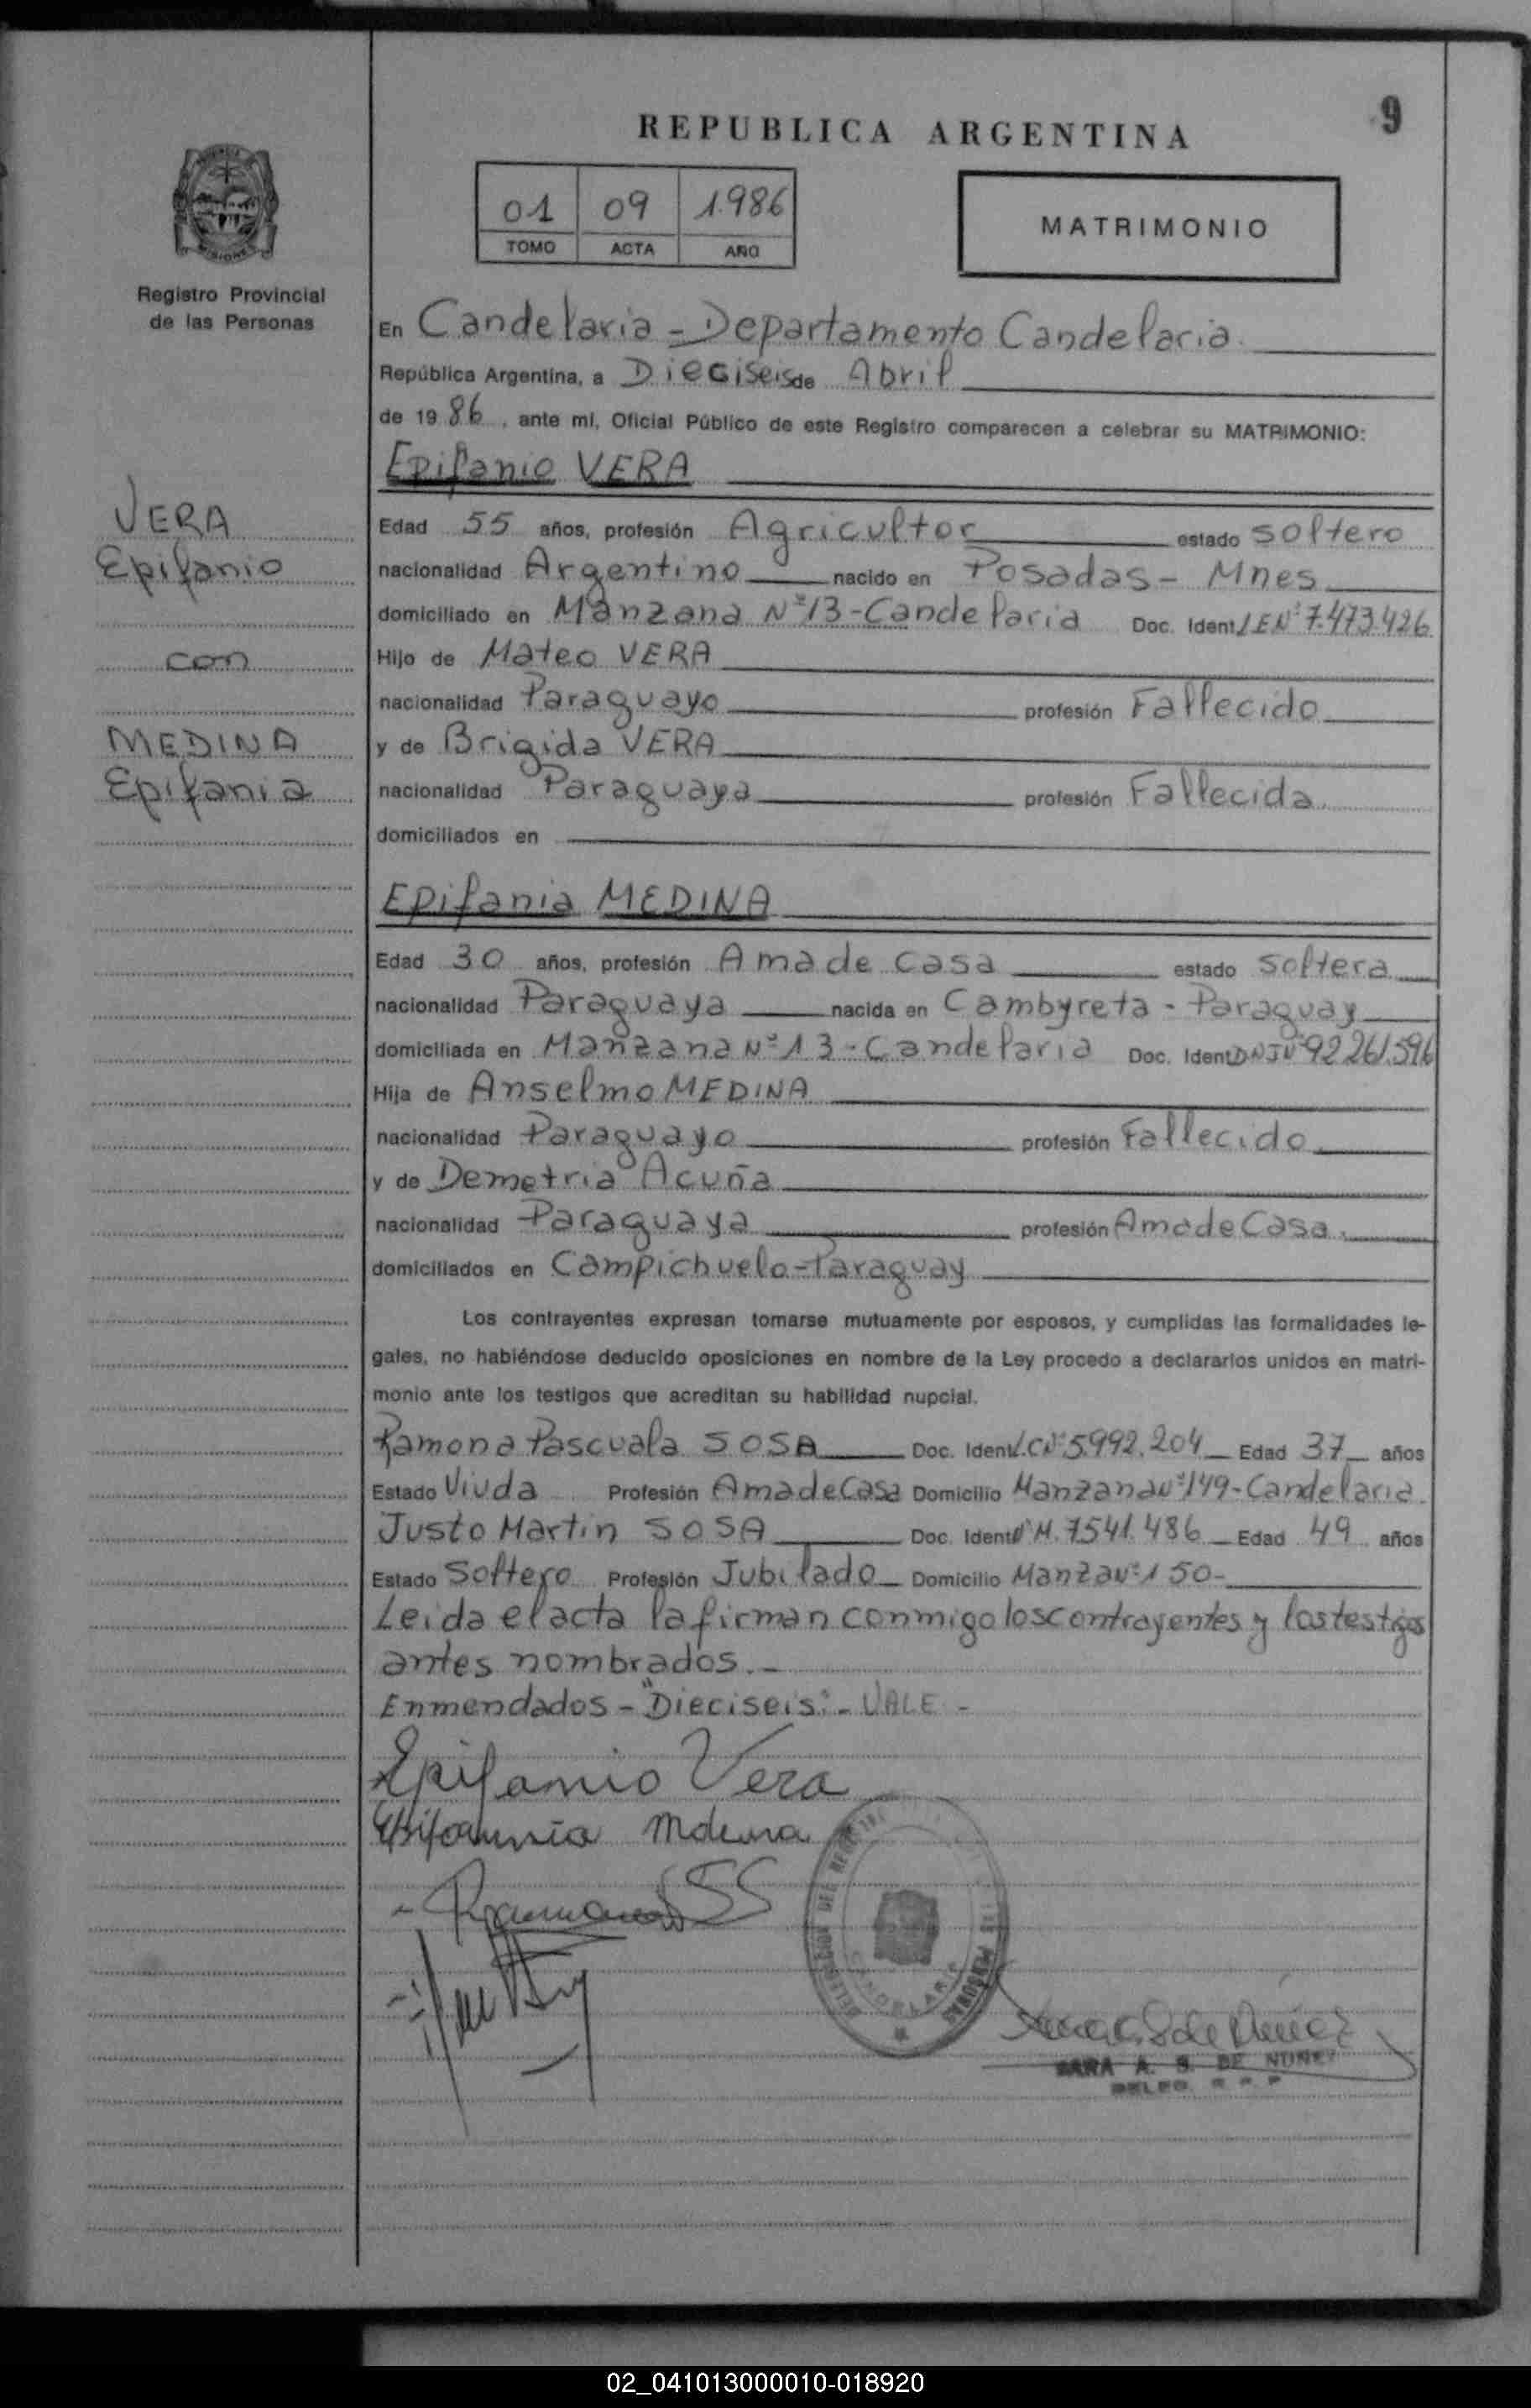 9
REPUBLICA ARGENTINA
01 09 1.986
TOMO ACTA AÑO
MATRIMONIO
Registro Provincial
de las Personas
En Candelaria - Departamento Candelaria.
República Argentina, a Dieciseis de Abril
de 1986, ante mí, Oficial Público de este Registro comparecen a celebrar su MATRIMONIO:
Epifanio VERA
VERA
Epifanio
con
MEDINA
Epifania
Edad 55 años, profesión Agricultor estado soltero
nacionalidad Argentino nacido en Posadas - Mnes
domiciliado en Manzana Nº 13 - Candelaria Doc. Ident. LE Nº 7.473.426
Hijo de Mateo VERA
nacionalidad Paraguayo profesión Fallecido
y de Brigida VERA
nacionalidad Paraguaya profesión Fallecida.
domiciliados en
Epifania MEDINA
Edad 30 años, profesión Ama de casa estado soltera
nacionalidad Paraguaya nacida en Cambyreta - Paraguay
domiciliada en Manzana Nº 13 - Candelaria Doc. Ident. DNI Nº 92 261.596
Hija de Anselmo MEDINA
nacionalidad Paraguayo profesión Fallecido
y de Demetria Acuña
nacionalidad Paraguaya profesión Ama de Casa.
domiciliados en Campichuelo - Paraguay
Los contrayentes expresan tomarse mutuamente por esposos, y cumplidas las formalidades le-
gales, no habiéndose deducido oposiciones en nombre de la Ley procedo a declararlos unidos en matri-
monio ante los testigos que acreditan su habilidad nupcial.
Ramona Pascuala SOSA Doc. Ident. L.C Nº 5.992.204 Edad 37 años
Estado Viuda Profesión Ama de Casa Domicilio Manzana Nº 149 - Candelaria.
Justo Martin SOSA Doc. Ident. Nº M. 7541.486 Edad 49 años
Estado Soltero Profesión Jubilado Domicilio Manza Nº 150-
Leida el acta la firman conmigo los contrayentes y los testigos
antes nombrados.-
Enmendados - "Dieciseis". - VALE -
Epifanio Vera
Ramona S S
CANDELARIA
SARA A. S. DE NUÑEZ
DELEG. R. P. P
02_041013000010-018920